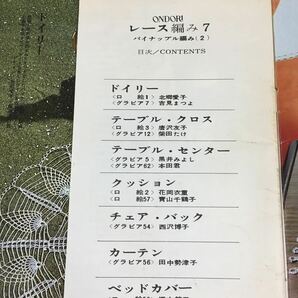 ONDORI
レース編み7
パイナップル編み(2)
目次/CONTENTS
ドイリー
〈口 絵1〉 北郷愛子
〈グラビア7〉 吉見まつよ
テーブル・クロス
〈口 絵3〉 唐沢友子
〈グラビア12〉 柴田たけ
テーブル・センター
〈グラビア 5〉 黒井みよし
〈グラビア62〉 本田君
クッション
〈口 絵2〉 花岡衣重
〈口 絵57〉 青山千鶴子
チェア・バック
〈グラビア54〉 西沢博子
カーテン
〈グラビア56〉 田中勢津子
ベッドカバー
ドイリー